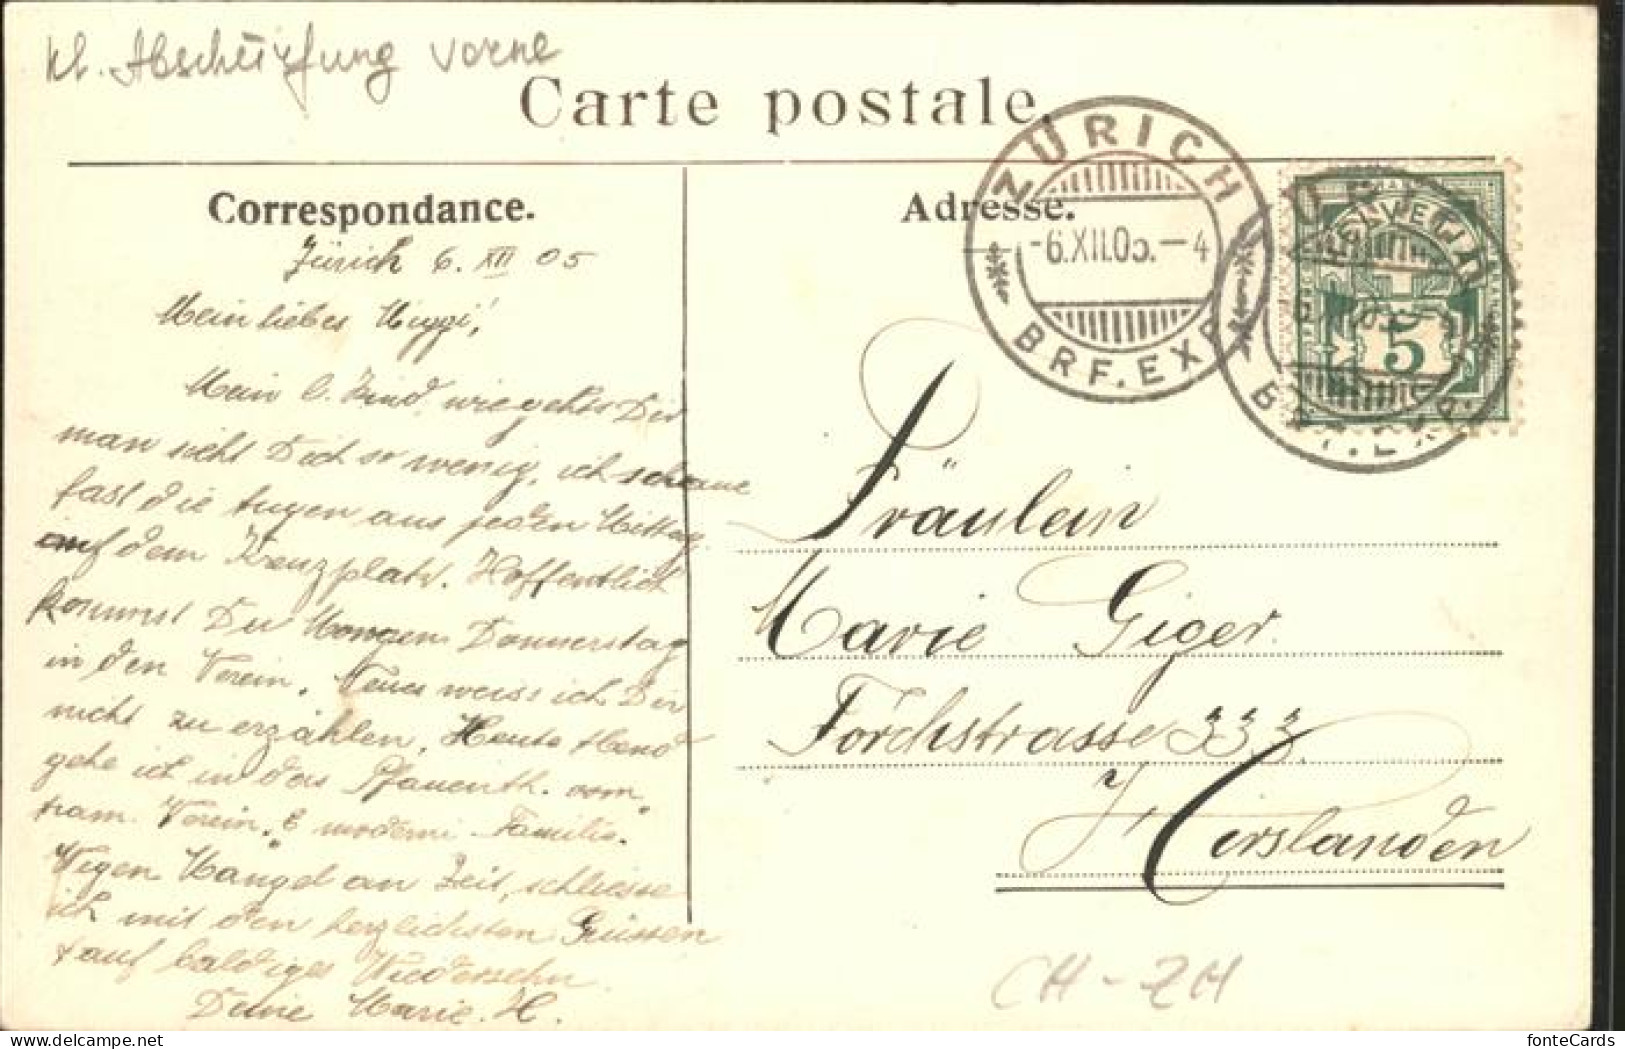 kl. Abschürfung vorne
Carte postale.
Correspondance.
Adresse.
ZÜRICH
-6.XII.05.-4
BRF.EXP.
HELVETIA
5
Zürich 6. XII 05
Mein liebes Miggi!
Mein l. Kind, wie geht es Dir
man sieht Dich so wenig, ich schaue
fast die Augen aus jeden Mittag
auf dem Kreuzplatz. Hoffentlich
kommst Du Morgen Donnerstag
in den Verein. Neues weiss ich Dir
nicht zu erzählen. Heute Abend
gehe ich in das Pfauenth. vom
tram. Verein,
Familie.
Wegen Mangel an Zeit, schliesse
ich mit den herzlichsten Grüssen
+ auf baldiges Wiedersehn
Deine Marie. H.
Fräulein
Marie Giger.
Forchstrasse 333.
Hirslanden
CH - ZH
fonteCards